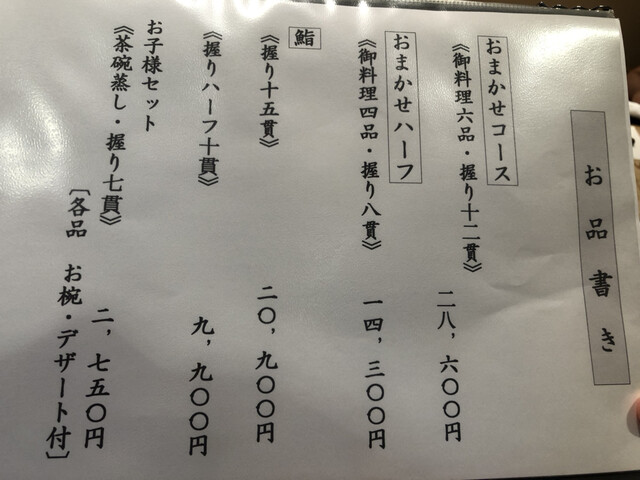 お品書き
おまかせコース
《御料理六品・握り十二貫》
二八,六〇〇円
おまかせハーフ
《御料理四品・握り八貫》
一四,三〇〇円
鮨
《握り十五貫》
二〇,九〇〇円
《握りハーフ十貫》
九,九〇〇円
お子様セット
《茶碗蒸し・握り七貫》
二,七五〇円
〔各品 お椀・デザート付〕